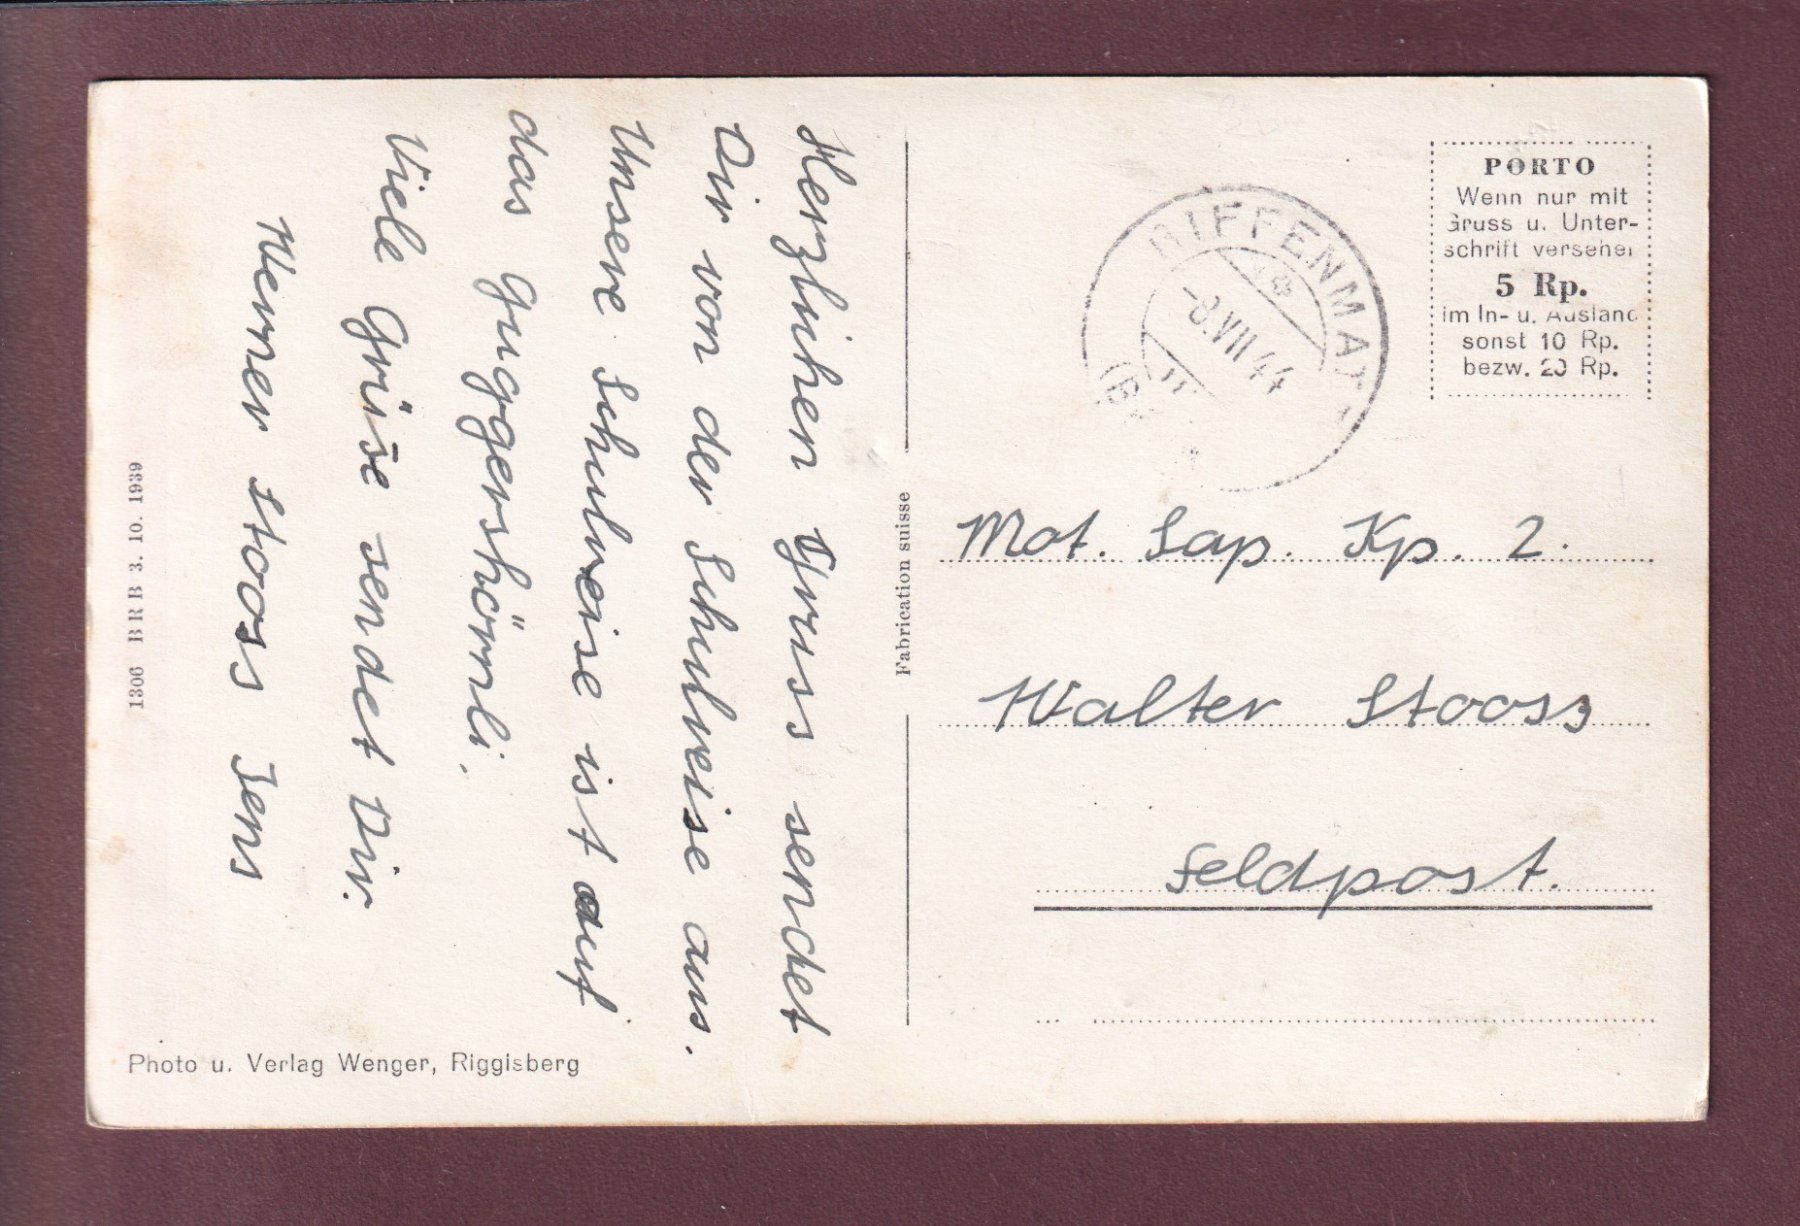 Herzlichen Gruss sendet
Dir von der Schulreise aus.
Unsere Schulreise ist auf
das Guggershörnli.
Viele Grüse sendet Dir.
Werner Stooss Jens
1306 BRB 3. 10. 1939
Photo u. Verlag Wenger, Riggisberg
Fabrication suisse
RIFFENMATT
-8.VII 44
PORTO
Wenn nur mit
Gruss u. Unter-
schrift versehen
5 Rp.
im In- u. Ausland
sonst 10 Rp.
bezw. 20 Rp.
Mot. Sap. Kp. 2.
Walter Stooss
Feldpost.